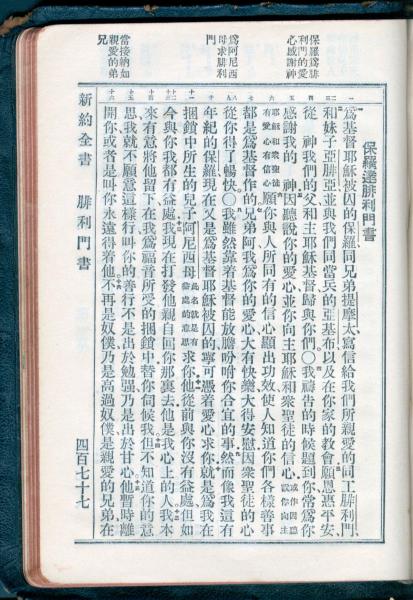 保羅爲腓
利門的愛
心感謝神
爲阿尼西
母求腓利
門
當接納如
親愛的弟
兄
保羅達腓利門書
爲基督耶穌被囚的保羅同兄弟提摩太、寫信給我們所親愛的同工腓利門、
和妹子亞腓亞、並與我們同當兵的亞基布、以及在你家的教會、願恩惠平安
從　神我們的父、和主耶穌基督、歸與你們〇我禱告的時候題到你、常爲你
感謝我的　神、因聽說你的愛心、並你向主耶穌和衆聖徒的信心、或作因聽說你向主
耶穌和衆聖徒有愛心有信心願你與人所同有的信心顯出功效、使人知道你們各樣善事
都是爲基督作的、兄弟阿、我爲你的愛心、大有快樂、大得安慰、因衆聖徒的心
從你得了暢快〇我雖然靠着基督能放膽吩咐你合宜的事、然而像我這有
年紀的保羅、現在又是爲基督耶穌被囚的、寧可憑着愛心求你、就是爲我在
捆鎖中所生的兒子阿尼西母此名就是有益處的意思求你、他從前與你沒有益處、但如
今與你我都有益處、我現在打發他親自回你那裏去、他是我心上的人、我本
來有意將他留下、在我爲福音所受的捆鎖中替你伺候我、但不知道你的意
思、我就不願意這樣行、叫你的善行不是出於勉強、乃是出於甘心、他暫時離
開你、或者是叫你永遠得着他、不再是奴僕、乃是高過奴僕、是親愛的兄弟、在
新約全書　腓利門書　四百七十七